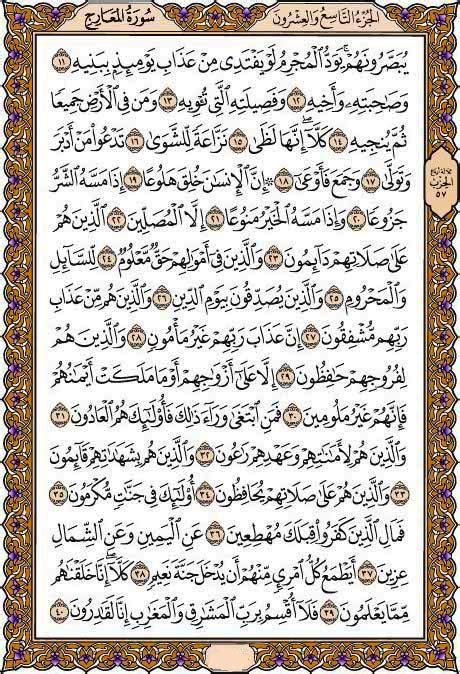 الجزء التاسع والعشرون
سورة المعارج
يُبَصَّرُونَهُمْ ۚ يَوَدُّ ٱلْمُجْرِمُ لَوْ يَفْتَدِى مِنْ عَذَابِ يَوْمِئِذٍۭ بِبَنِيهِ ١١
وَصَـٰحِبَتِهِۦ وَأَخِيهِ ١٢ وَفَصِيلَتِهِ ٱلَّتِى تُـْٔوِيهِ ١٣ وَمَن فِى ٱلْأَرْضِ جَمِيعًا
ثُمَّ يُنجِيهِ ١٤ كَلَّآ ۖ إِنَّهَا لَظَىٰ ١٥ نَزَّاعَةً لِّلشَّوَىٰ ١٦ تَدْعُوا۟ مَنْ أَدْبَرَ
وَتَوَلَّىٰ ١٧ وَجَمَعَ فَأَوْعَىٰٓ ١٨ ۞ إِنَّ ٱلْإِنسَـٰنَ خُلِقَ هَلُوعًا ١٩ إِذَا مَسَّهُ ٱلشَّرُّ
جَزُوعًا ٢٠ وَإِذَا مَسَّهُ ٱلْخَيْرُ مَنُوعًا ٢١ إِلَّا ٱلْمُصَلِّينَ ٢٢ ٱلَّذِينَ هُمْ
عَلَىٰ صَلَاتِهِمْ دَآئِمُونَ ٢٣ وَٱلَّذِينَ فِىٓ أَمْوَٰلِهِمْ حَقٌّ مَّعْلُومٌ ٢٤ لِّلسَّآئِلِ
وَٱلْمَحْرُومِ ٢٥ وَٱلَّذِينَ يُصَدِّقُونَ بِيَوْمِ ٱلدِّينِ ٢٦ وَٱلَّذِينَ هُم مِّنْ عَذَابِ
رَبِّهِم مُّشْفِقُونَ ٢٧ إِنَّ عَذَابَ رَبِّهِمْ غَيْرُ مَأْمُونٍ ٢٨ وَٱلَّذِينَ هُمْ
لِفُرُوجِهِمْ حَـٰفِظُونَ ٢٩ إِلَّا عَلَىٰٓ أَزْوَٰجِهِمْ أَوْ مَا مَلَكَتْ أَيْمَـٰنُهُمْ
فَإِنَّهُمْ غَيْرُ مَلُومِينَ ٣٠ فَمَنِ ٱبْتَغَىٰ وَرَآءَ ذَٰلِكَ فَأُو۟لَـٰٓئِكَ هُمُ ٱلْعَادُونَ ٣١
وَٱلَّذِينَ هُمْ لِأَمَـٰنَـٰتِهِمْ وَعَهْدِهِمْ رَٰعُونَ ٣٢ وَٱلَّذِينَ هُم بِشَهَـٰدَٰتِهِمْ قَآئِمُونَ
٣٣ وَٱلَّذِينَ هُمْ عَلَىٰ صَلَاتِهِمْ يُحَافِظُونَ ٣٤ أُو۟لَـٰٓئِكَ فِى جَنَّـٰتٍ مُّكْرَمُونَ ٣٥
فَمَالِ ٱلَّذِينَ كَفَرُوا۟ قِبَلَكَ مُهْطِعِينَ ٣٦ عَنِ ٱلْيَمِينِ وَعَنِ ٱلشِّمَالِ
عِزِينَ ٣٧ أَيَطْمَعُ كُلُّ ٱمْرِئٍ مِّنْهُمْ أَن يُدْخَلَ جَنَّةَ نَعِيمٍ ٣٨ كَلَّآ ۖ إِنَّا خَلَقْنَـٰهُم
مِّمَّا يَعْلَمُونَ ٣٩ فَلَآ أُقْسِمُ بِرَبِّ ٱلْمَشَـٰرِقِ وَٱلْمَغَـٰرِبِ إِنَّا لَقَـٰدِرُونَ ٤٠
الحزب
٥٧